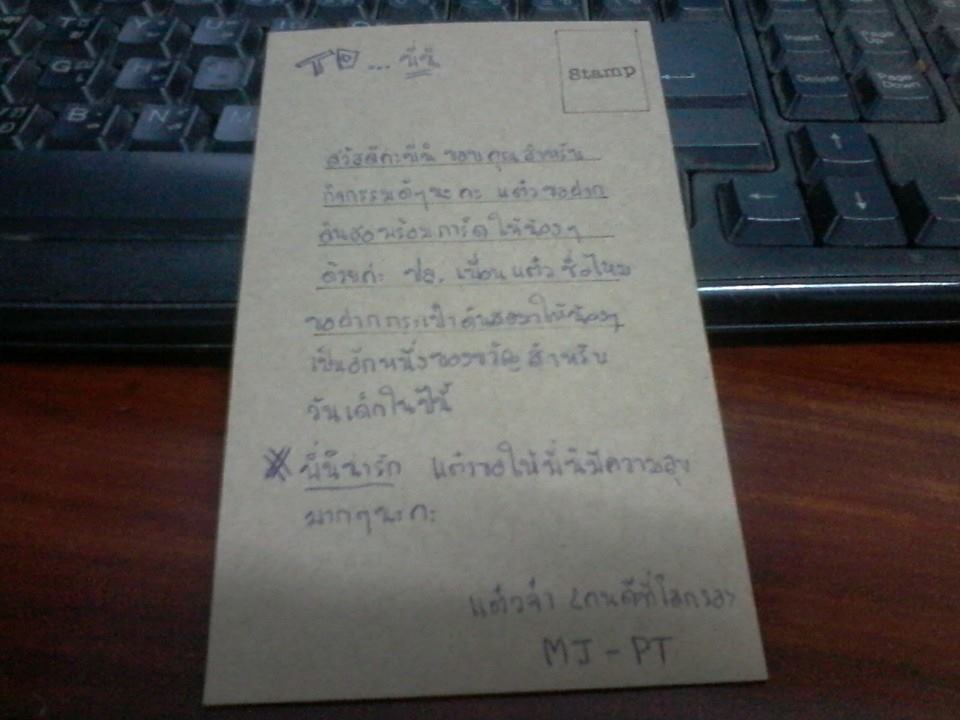 To... พี่นิ
Stamp
สวัสดีค่ะพี่นิ ขอบคุณสำหรับ
กิจกรรมดีๆนะคะ แต๋วขอฝาก
ดินสอพร้อมการ์ดให้น้องๆ
ด้วยค่ะ ปล. เพื่อนแต๋ว ชื่อไหม
ขอฝากกระเป๋าดินสอมาให้น้องๆ
เป็นอีกหนึ่งของขวัญสำหรับ
วันเด็กในปีนี้
พี่นิน่ารัก แต๋วขอให้พี่นิมีความสุข
มากๆนะคะ
แต๋วจ๋า คนดีที่โลกรอ
MJ - PT
Insert
Page Up
Delete
Page Down
T
Y
U
G
B
N
M